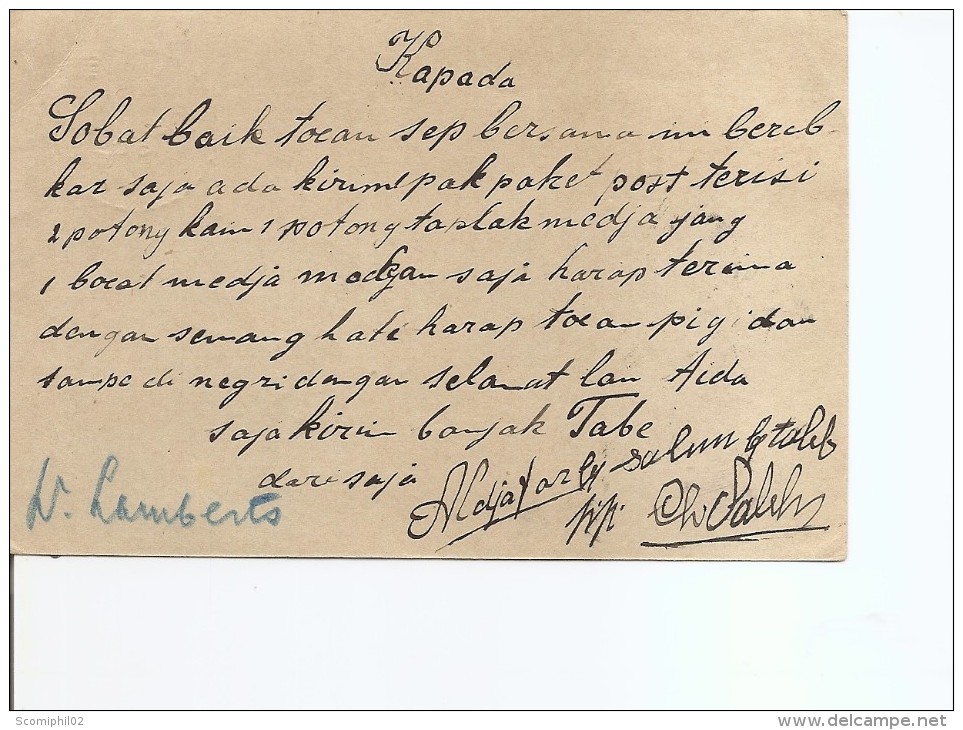 Kapada
Sobat baik toean sep bersama ini bereb-
kar saja ada kirim 1 pak paket post terisi
2 potong kain 1 potong taplak medja jang
1 boeat medja makan saja harap terima
dengan senang hati harap toean pigi dan
sampe di negri dengan selamat lan Aida
saja kirim banjak Tabe
dari saja Aldjafar by salum by taleb
p/p. Ch Saleh
W. Lamberts
Scomiphil02
www.delcampe.net